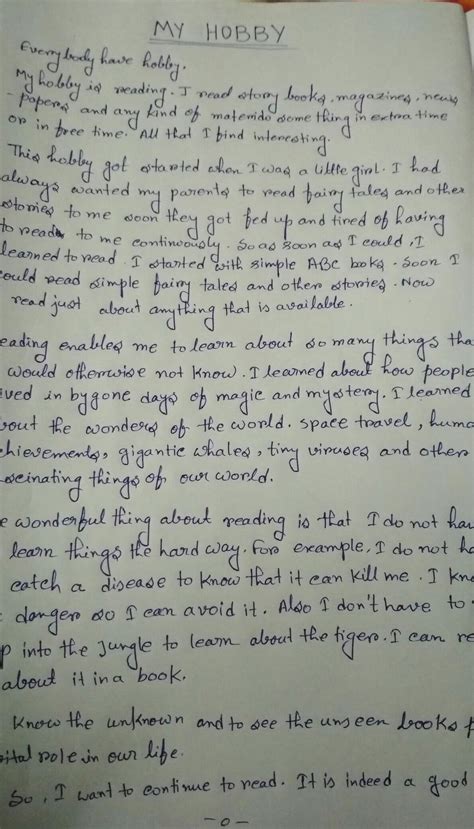 MY HOBBY
Everybody have hobby.
My hobby is reading. I read story books, magazines, news
-papers and any kind of materido some thing in extra time
or in free time. All that I find interesting.
This hobby got started when I was a little girl. I had
always wanted my parents to read fairy tales and other
stories to me soon they got fed up and tired of having
to reads to me continuously. So as soon as I could, I
learned to read. I started with simple ABC books. Soon I
could read simple fairy tales and other stories. Now
read just about anything that is available.
eading enables me to learn about so many things tha
would otherwise not know. I learned about how people
ived in bygone days of magic and mystery. I learned
bout the wonders of the world. space travel, huma
chievements, gigantic whales, tiny viruses and other
scinating things of our world.
e wonderful thing about reading is that I do not hav
learn things the hard way. For example, I do not ha
catch a disease to know that it can kill me. I kno
danger so I can avoid it. Also I don't have to
p into the jungle to learn about the tiger. I can re
about it in a book.
Know the unknown and to see the unseen books p
vital role in our life.
So, I want to continue to read. It is indeed a good
-0-